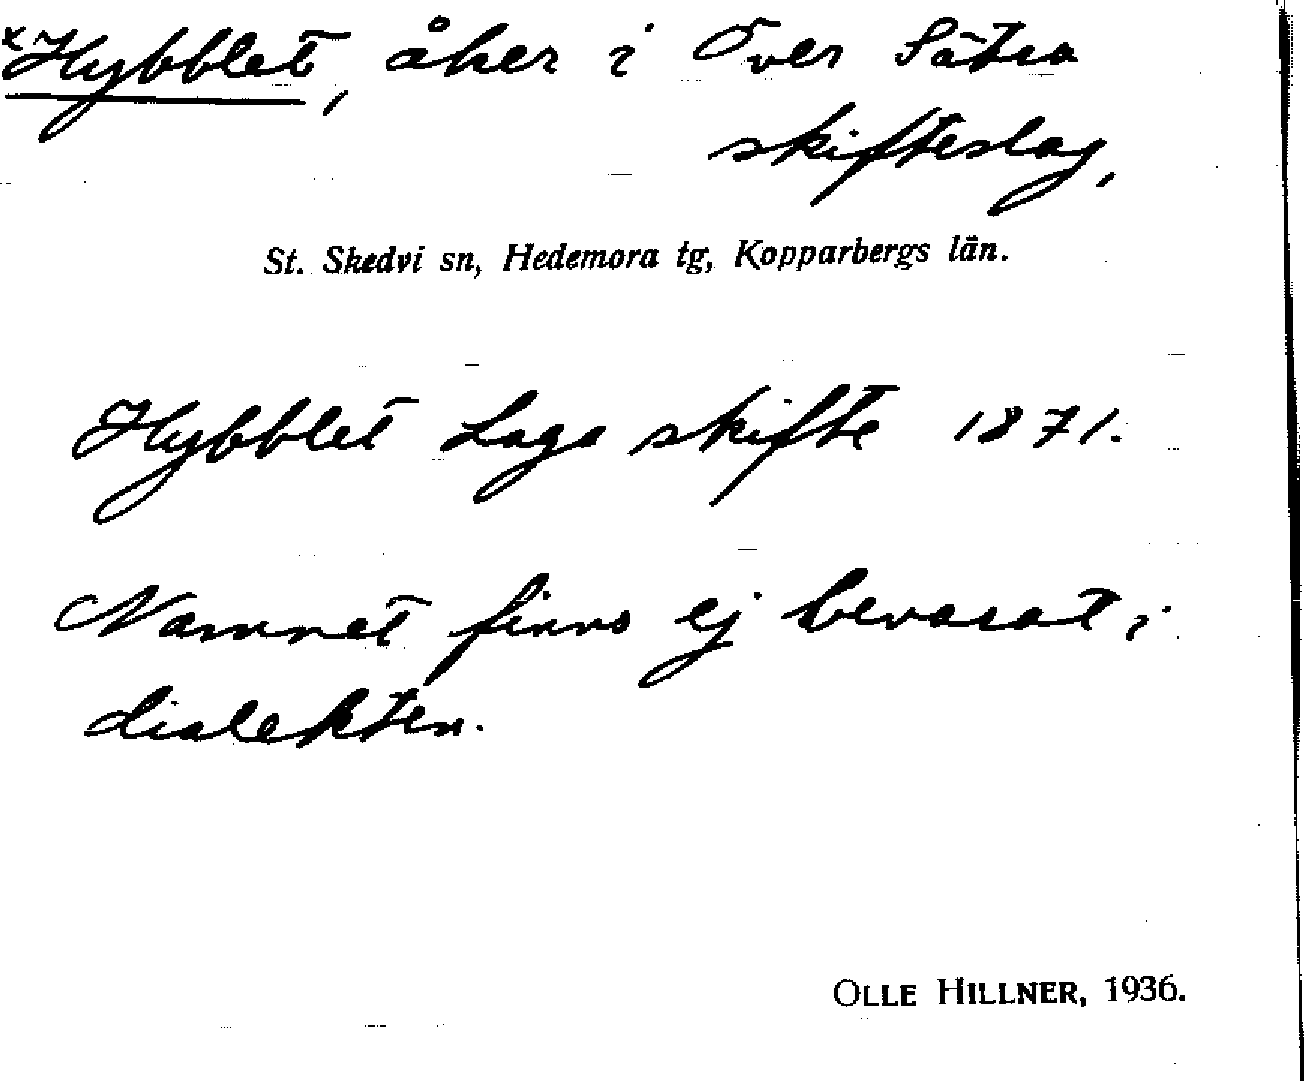 ×Hybblet, åker i Över Sätra
skifteslag,
St. Skedvi sn, Hedemora tg, Kopparbergs län.
Hybblet Laga skifte 1871.
Namnet finns ej bevarat i
dialekten.
OLLE HILLNER, 1936.